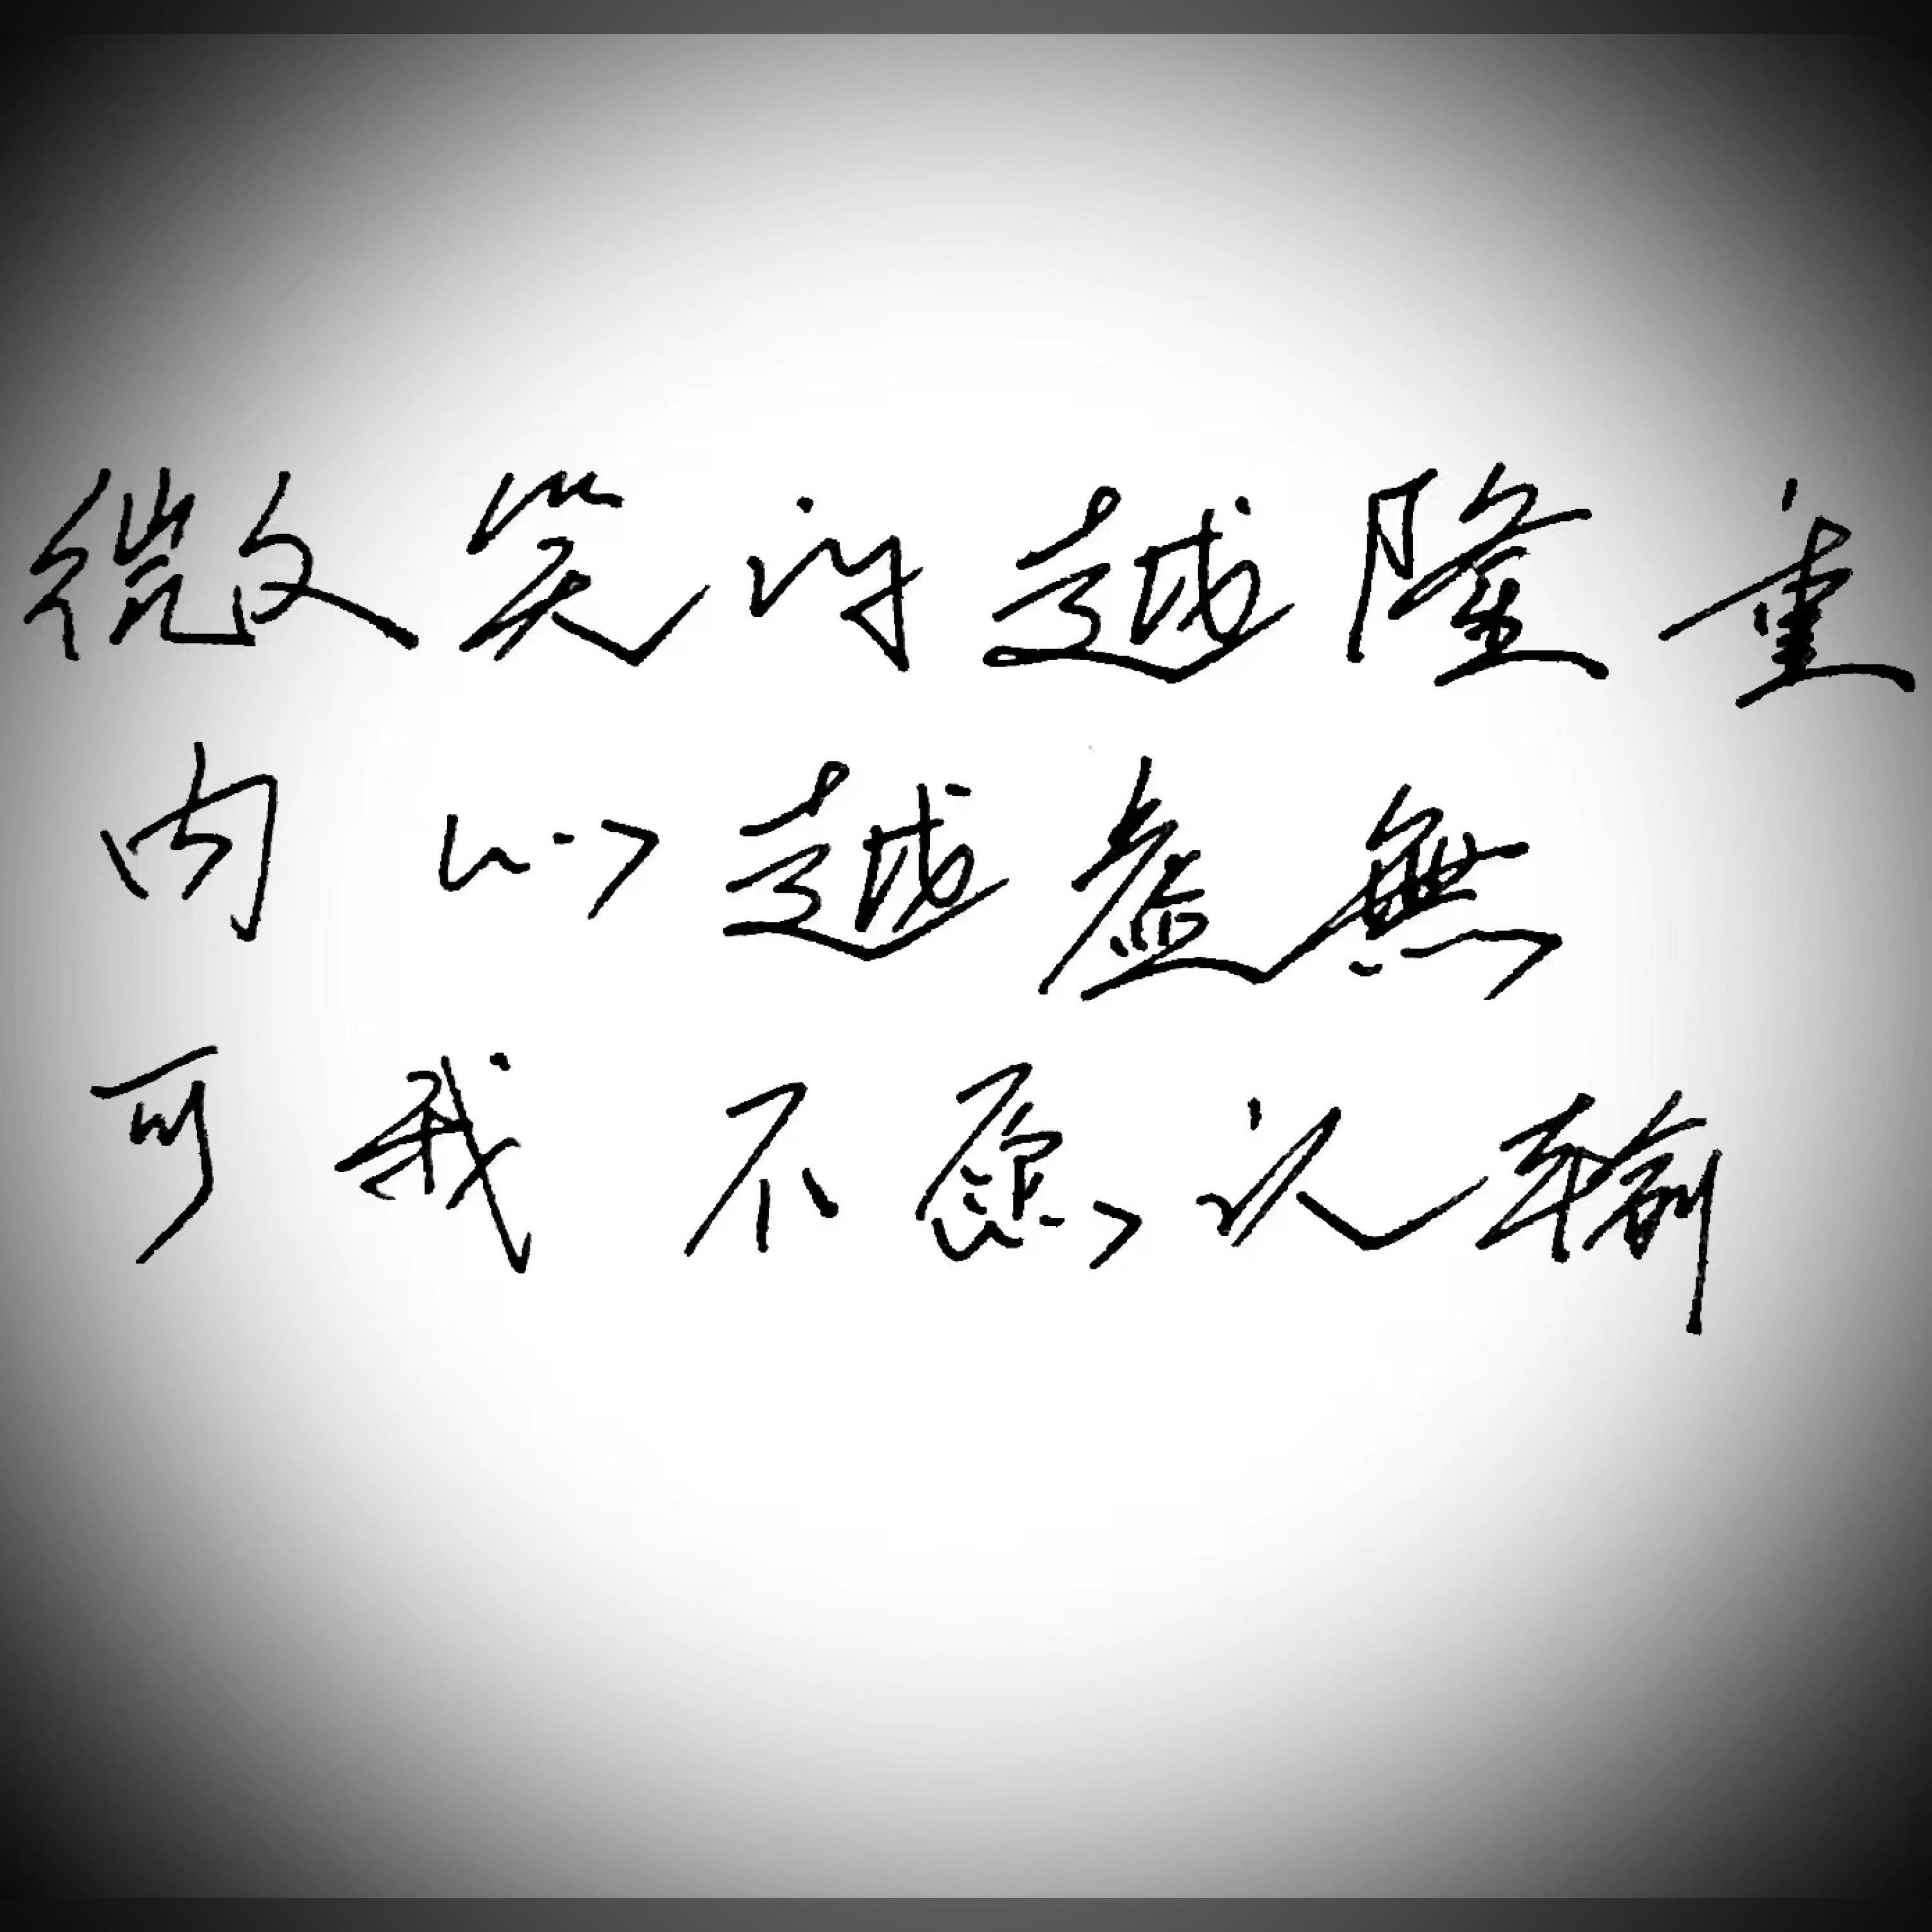 微笑得越隆重
内心越虚無
可我不愿认输